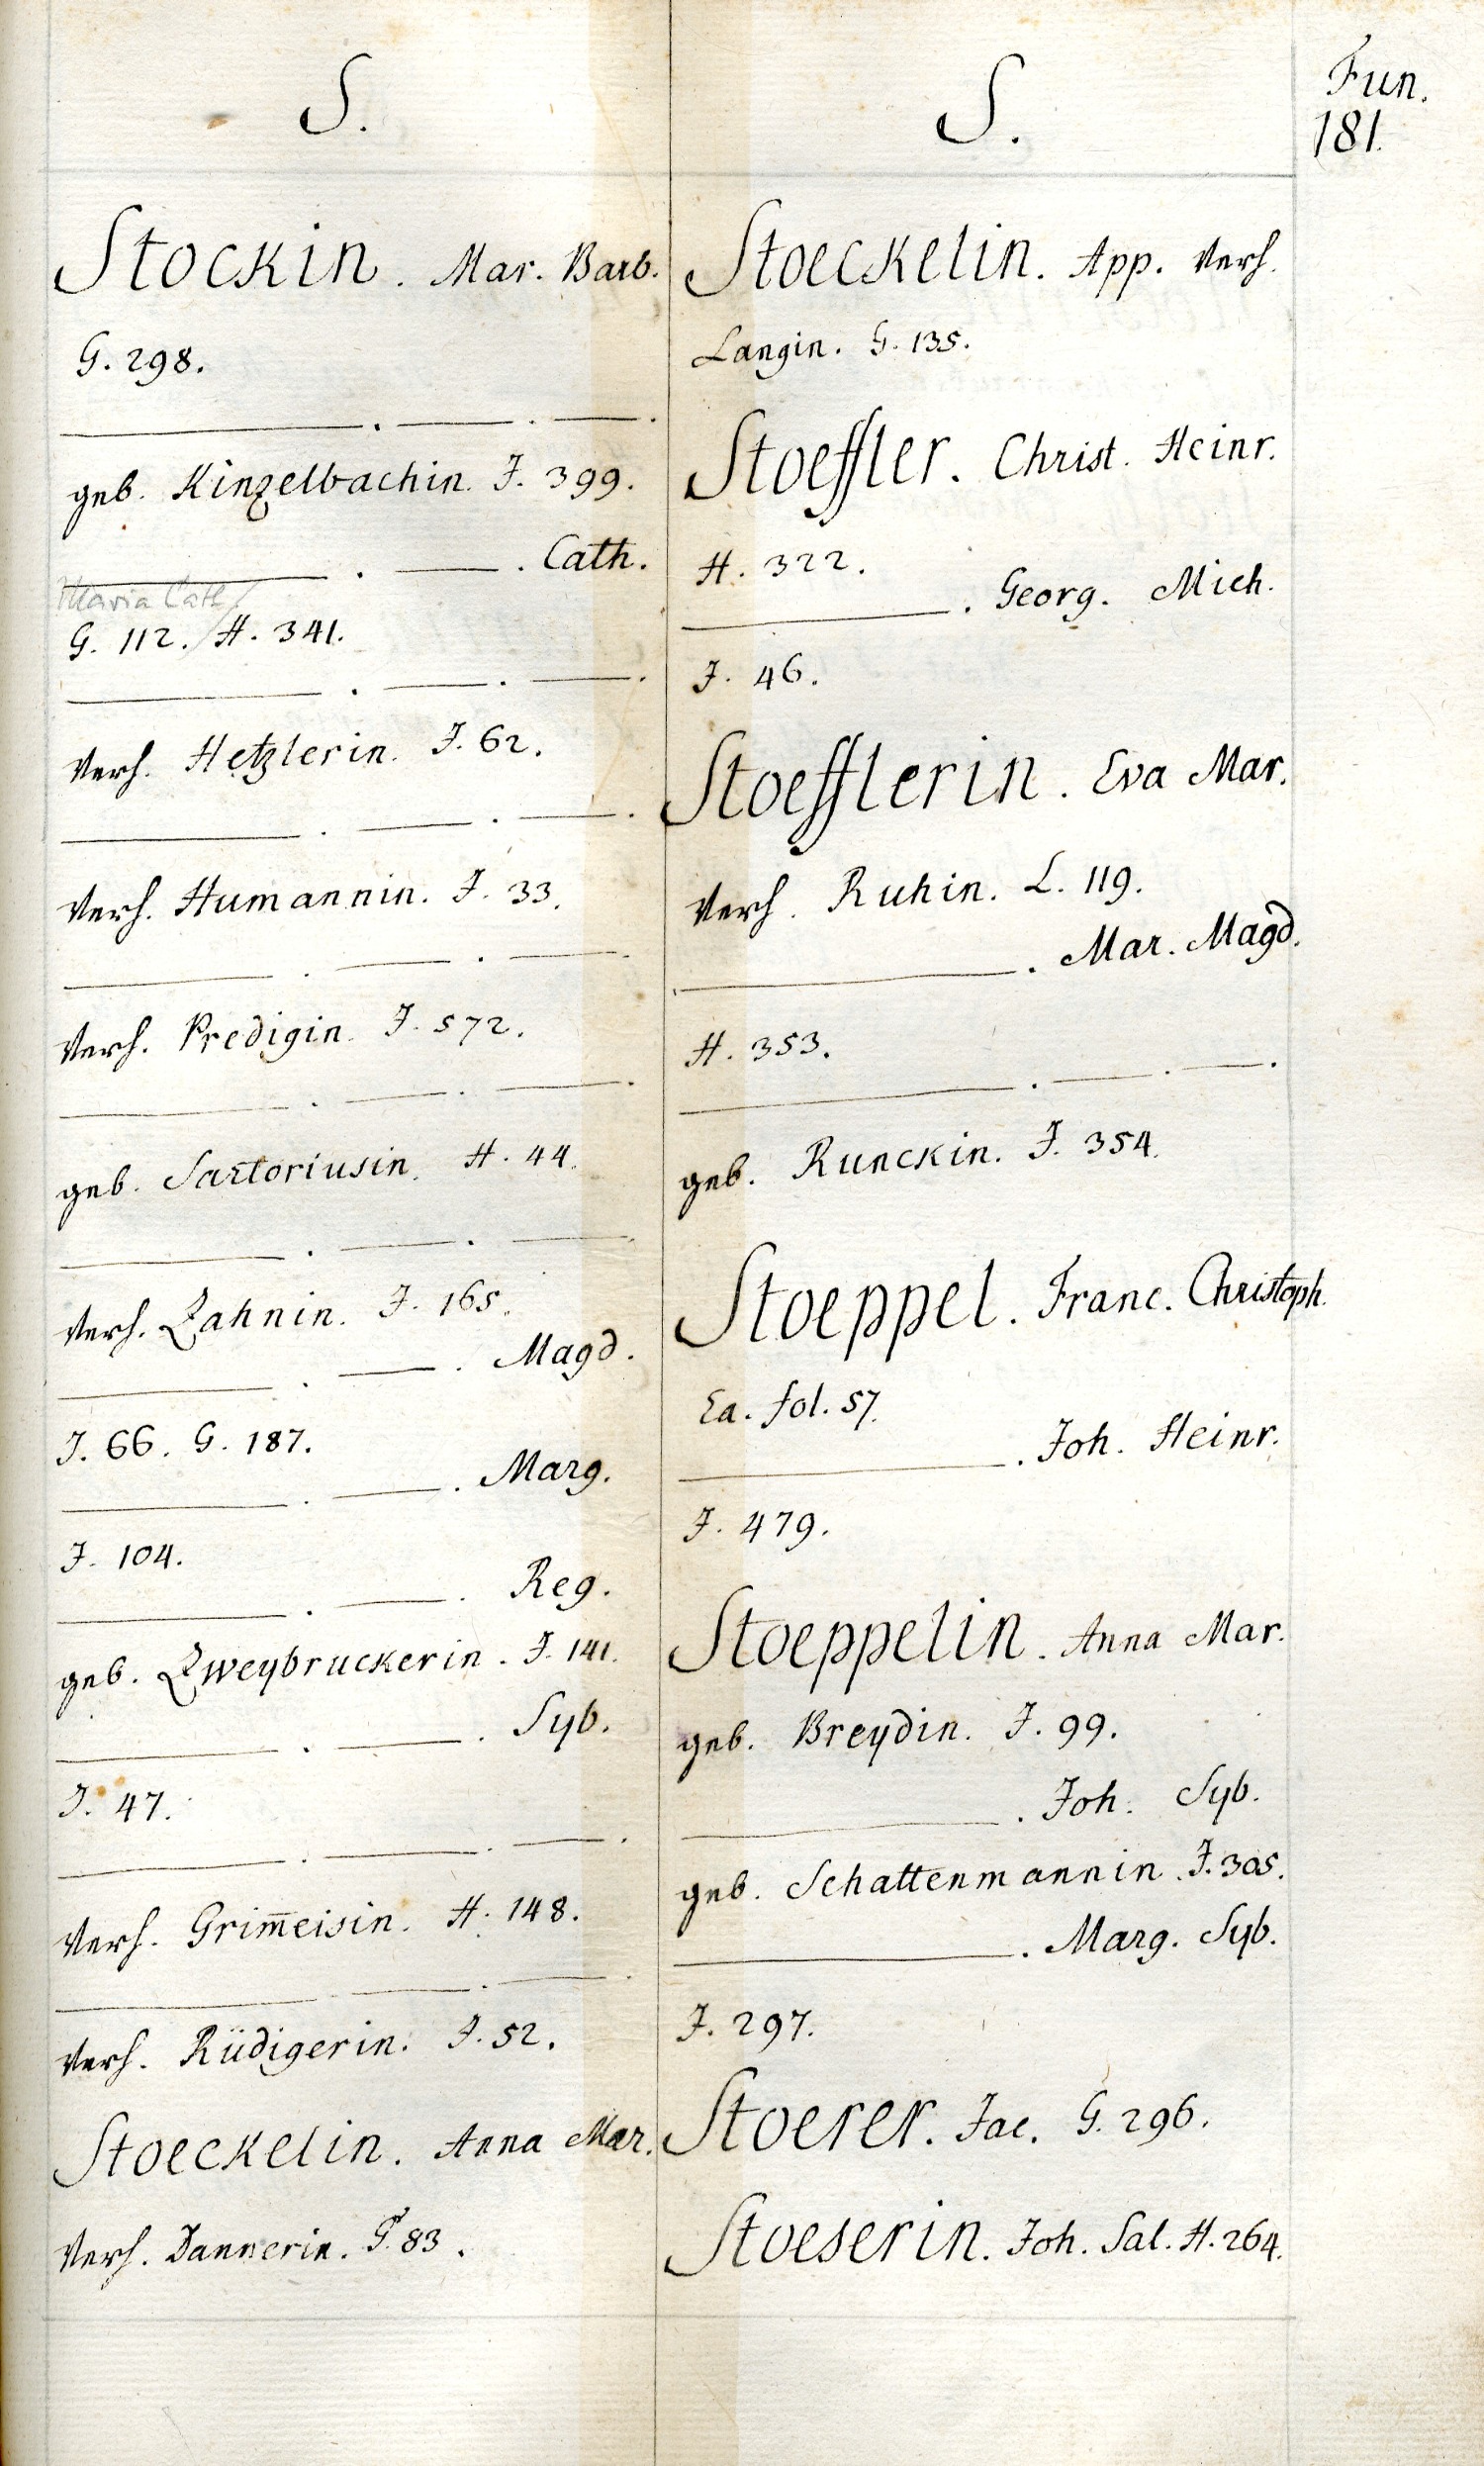 S.
Stockin. Mar. Barb.
G. 298.
geb. Kinzelbachin. J. 399.
Cath.
Maria Cath
G. 112. H. 341.
Verh. Hetzlerin. J. 62.
Verh. Humannin. J. 33.
Verh. Predigin. J. 572.
geb. Sartoriusin. H. 44.
Verh. Zahnin. J. 165.
Magd.
J. 66. G. 187.
Marg.
J. 104.
Reg.
geb. Zweybruckerin. J. 141.
Syb.
J. 47.
Verh. Grim̄eisin. H. 148.
Verh. Rüdigerin. J. 52.
Stoeckelin. Anna Mar.
Verh. Dannerin. G. 83.
S.
Stoeckelin. App. Verh.
Langin. G. 135.
Stoeffler. Christ. Heinr.
H. 322.
Georg. Mich.
J. 46.
Stoefflerin. Eva Mar.
Verh. Ruhin. L. 119.
Mar. Magd.
H. 353.
geb. Runckin. J. 354.
Stoeppel. Franc. Christoph.
Ea. fol. 57.
Joh. Heinr.
J. 479.
Stoeppelin. Anna Mar.
geb. Breydin. J. 99.
Joh. Syb.
geb. Schattenmannin. J. 305.
Marg. Syb.
J. 297.
Stoerer. Jac. G. 296.
Stoeserin. Joh. Sal. H. 264.
Fun.
181.